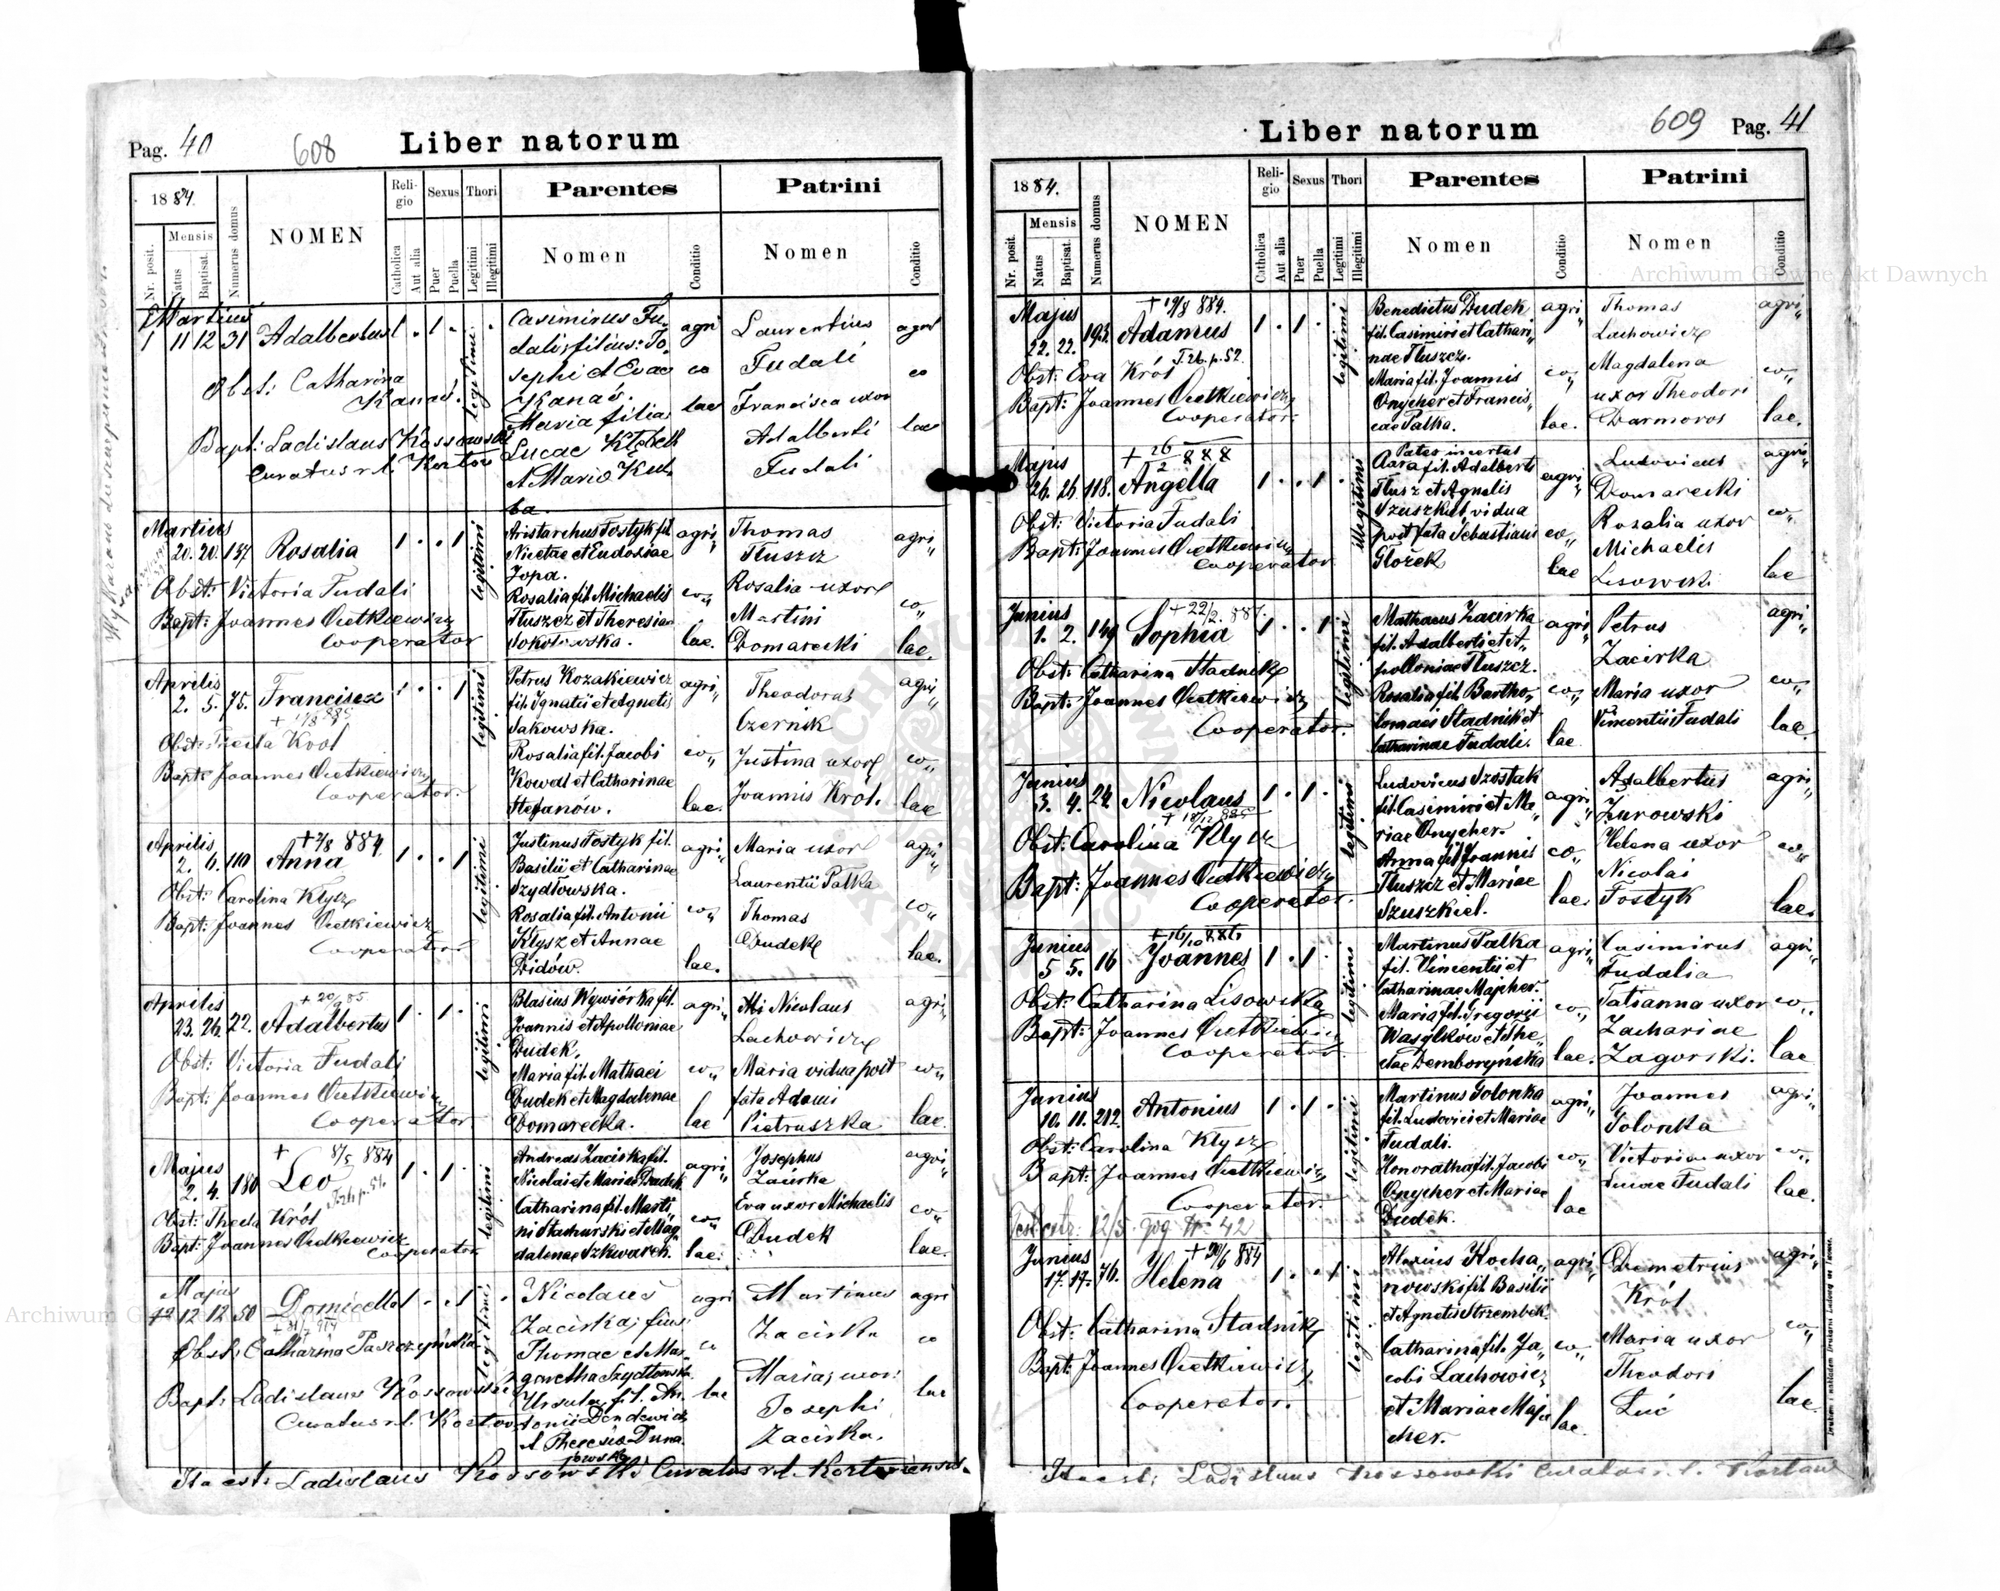 Pag. 40
608
Liber natorum
1884.
Mensis
Nr. posit.
Natus
Baptisat.
Numerus domus
NOMEN
Religio
Catholica
Aut alia
Sexus
Puer
Puella
Thori
Legitimi
Illegitimi
Parentes
Nomen
Conditio
Patrini
Nomen
Conditio
Martius
1 11 12 31 Adalbertus 1 . 1 . .
legitimi
Obst: Catharina
Kanas.
Bapt: Ladislaus Kossowski
Curatus r. l. Kortow
Casimirus Fu-
dali, filius: Jo-
sephi et Evae
Kanas.
Maria filia
Lucae
et Maria Kul-
ba.
agri
co
lae
Laurentius
Fudali
Francisca uxor
Adalberti
Fudali
agri
co
lae
Martius
20. 20. 137 Rosalia 1 . . 1
legitimi
Obst: Victoria Fudali
Bapt: Joannes Cietkiewicz
Cooperator
Aristarchus Tostyk fil.
Nicetae et Eudoxiae
Jopa.
Rosalia fil. Michaelis
Tłuszcz et Theresiae
Sokołowska.
agri„
co„
lae.
Thomas
Tłuszcz
Rosalia uxor
Martini
Domarecki
agri„
co„
lae.
Aprilis
2. 5. 75. Francisca 1 . . 1
legitimi
Obst: Thecla Król
Bapt: Joannes Cietkiewicz
Cooperator.
Petrus Kozakiewicz
fil. Ignatii et Agnetis
Sakowska.
Rosalia fil. Jacobi
Kowal et Catharinae
Stefanów.
agri„
co„
lae.
Theodorus
Czernik
Justina uxor
Joannis Król.
agri„
co„
lae
Aprilis
+ 2/8 884.
2. 6. 110 Anna 1 . . 1
legitimi
Obst: Carolina Kłysz
Bapt: Joannes Cietkiewicz
Cooperator
Justinus Tostyk fil.
Basilii et Catharinae
Szydłowska.
Rosalia fil. Antonii
Kłysz et Annae
Didów.
agri„
co„
lae.
Maria uxor
Laurentii Pałka
Thomas
Dudek
agri„
co„
lae.
Aprilis
+ 20/9 85.
23. 26. 22. Adalbertus 1 . 1 .
legitimi
Obst: Victoria Fudali
Bapt: Joannes Cietkiewicz
Cooperator
Blasius Wywiórka fil.
Joannis et Apolloniae
Dudek.
Maria fil. Mathaei
Dudek et Magdalenae
Domarecka.
agri„
co„
lae
Nicolaus
Lachowicz
Maria vidua post
fata Adami
Pietruszka
agri„
co„
lae.
Majus
+ 8/5 884
2. 4. 180 Leo 1 . 1 .
legitimi
Obst: Thecla Król
Bapt: Joannes Cietkiewicz
Cooperator
Andreas Zacirka fil.
Nicolai et Mariae Dudek
Catharina fil. Marti„
ni Stachurski et Mag„
dalenae Szkwarek.
agri„
co„
lae.
Josephus
Zacirka
Eva uxor Michaelis
Dudek
agri„
co„
lae.
Majus
12 12 50 Domicella 1 . . 1
legitimi
Obst: Catharina Paszczyńska
Bapt: Ladislaus Kossowski
Curatus r. l. Kortow
Nicolaus
Zacirka; filius:
Thomae et Mar-
garetha Szydłowska
Ursula, fil. An-
tonii Dendewicz
et Theresia Duna-
jowska
agri
co
lae
Martinus
Zacirka
Maria; uxor:
Josephi
Zacirka.
agri
co
lae
Ita est: Ladislaus Kossowski Curatus r. l. Kortoviensis.
609
Pag. 41
Liber natorum
1884.
Mensis
Nr. posit.
Natus
Baptisat.
Numerus domus
NOMEN
Religio
Catholica
Aut alia
Sexus
Puer
Puella
Thori
Legitimi
Illegitimi
Parentes
Nomen
Conditio
Patrini
Nomen
Conditio
Majus
+ 19/8 884.
22. 22. 193. Adamus 1 . 1 .
legitimi
Obst: Eva Król
Bapt: Joannes Cietkiewicz
Cooperator.
Benedictus Dudek
fil. Casimiri et Cathari„
nae Tłuszcz.
Maria fil. Joannis
Onycher et Francis„
cae Pałka.
agri„
co„
lae.
Thomas
Lachowicz
Magdalena
uxor Theodori
Darmoros
agri„
co„
lae.
Majus
+ 26/2 888
26. 26. 118. Angella 1 . . 1
illegitimi
Obst: Victoria Fudali
Bapt: Joannes Cietkiewicz
Cooperator
Pater incertus
fil. Adalberti
Tłusz et Agnetis
Szuszkiel vidua
post fata Sebastiani
Głożek
agri„
co„
lae
Ludovicus
Domarecki
Rosalia uxor
Michaelis
Lisowski
agri„
co„
lae
Junius
+ 22/2. 887.
1. 2. 149 Sophia 1 . . 1
legitimi
Obst: Catharina Stadnik
Bapt: Joannes Cietkiewicz
Cooperator.
Mathaeus Zacirka
fil. Adalberti et A„
polloniae Tłuszcz.
Rosalia fil. Bartho„
lomaei Stadnik et
Catharinae Fudali.
agri„
co„
lae
Petrus
Zacirka
Maria uxor
Vincentii Fudali
agri„
co„
lae.
Junius
3. 4. 24. Nicolaus 1 . 1 .
legitimi
Obst: Carolina Kłysz
Bapt: Joannes Cietkiewicz
Cooperator.
Ludovicus Szostak
fil. Casimiri et Ma„
riae Onycher.
Anna fil. Joannis
Tłuszcz et Mariae
Szuszkiel.
agri„
co„
lae.
Adalbertus
Żurowski
Helena uxor
Nicolai
Tostyk
agri„
co„
lae.
Junius
5 5. 16 Joannes 1 . 1 .
legitimi
Obst: Catharina Lisowska
Bapt: Joannes Cietkiewicz
Cooperator.
Martinus Pałka
fil. Vincentii et
Catharinae Majcher.
Maria fil. Gregorii
Wasylków et The„
clae Demboryńska
agri„
co„
lae.
Casimirus
Fudalia
Tatianna uxor
Zachariae
Zagorski.
agri„
co„
lae
Junius
10. 11. 212. Antonius 1 . 1 .
legitimi
Obst: Carolina Kłysz
Bapt: Joannes Cietkiewicz
Cooperator.
Martinus Golonka
fil. Ludovici et Mariae
Fudali.
Honoratha fil. Jacobi
Onycher et Mariae
Dudek.
agri„
co„
lae
Joannes
Golonka
Victoria uxor
Lucae Fudali
agri„
co„
lae.
Junius
+ 20/6 884
17. 17. 76. Helena 1 . . 1
legitimi
Obst: Catharina Stadnik
Bapt: Joannes Cietkiewicz
Cooperator.
Alexius Kocha„
nowski fil. Basilii
et Agnetis Strzembek.
Catharina fil. Ja„
cobi Lachowicz
et Mariae Maj„
cher.
agri„
co„
lae.
Demetrius
Król
Maria uxor
Theodori
Łuć
agri„
co„
lae.
Ita est: Ladislaus Kossowski Curatus r. l. Kortow
Archiwum Główne Akt Dawnych
Archiwum Główne Akt Dawnych